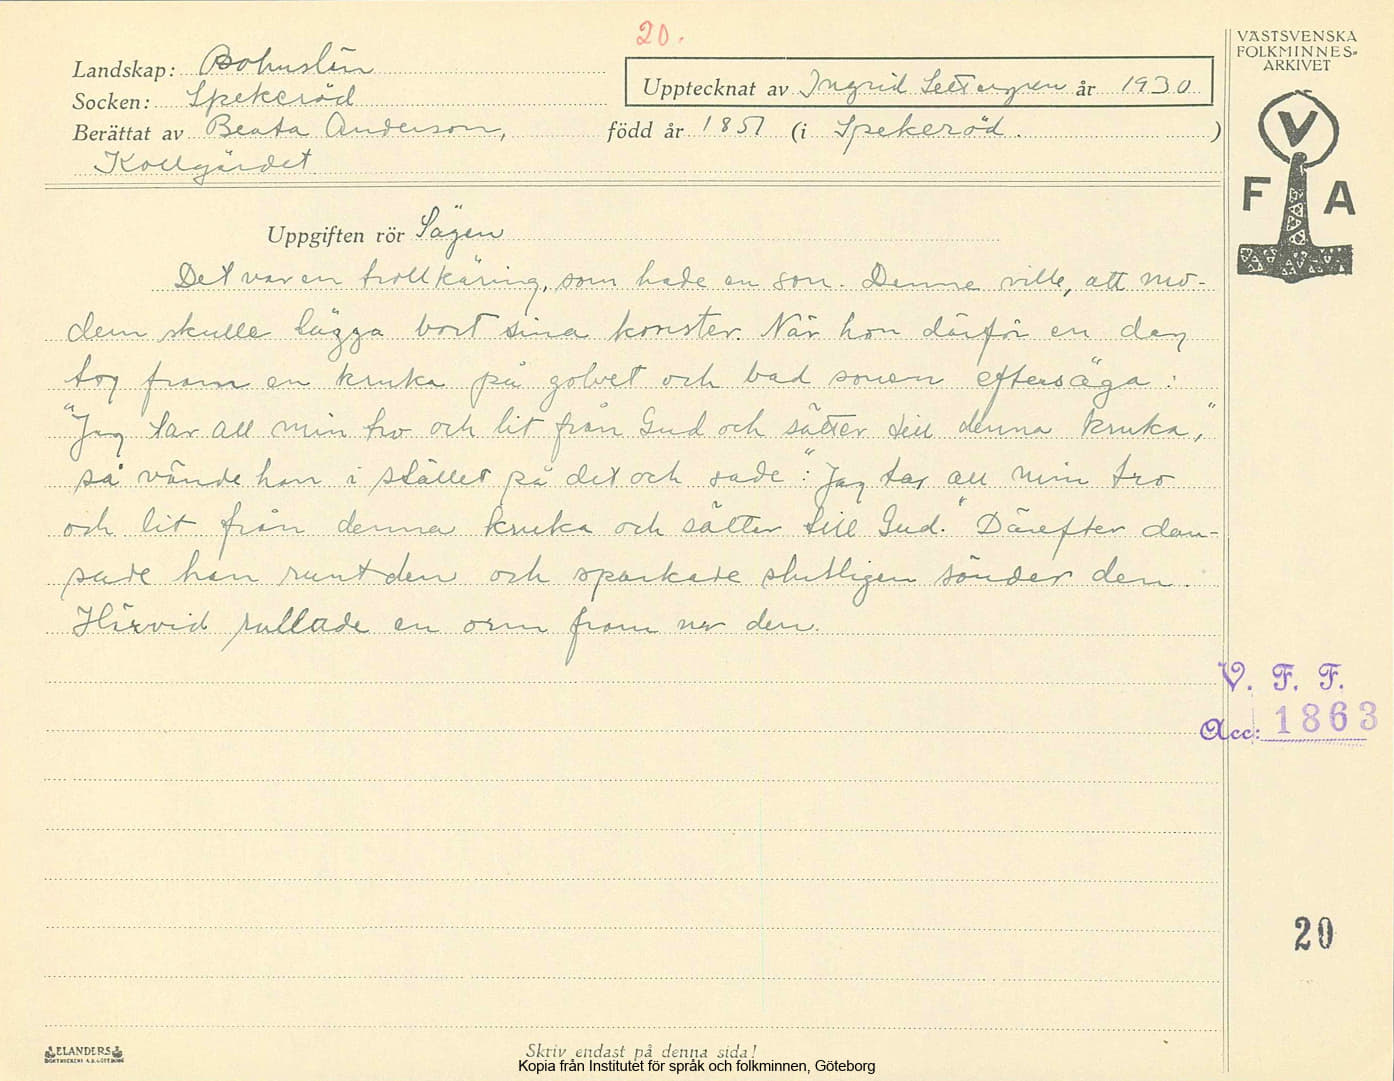 20.
VÄSTSVENSKA
FOLKMINNES-
ARKIVET
Landskap: Bohuslän
Upptecknat av Ingrid år 1930
Socken: Spekeröd
Berättat av Beata Anderson, född år 1851 (i Spekeröd. )
Kollgärdet
V
F A
Uppgiften rör Sägen
Det var en trollkäring, som hade en son. Denne ville, att mo-
dern skulle lägga bort sina konster. När hon därför en dag
tog fram en kruka på golvet och bad sonen eftersäga:
"Jag tar all min tro och lit från Gud och sätter till denna kruka,"
så vände han i stället på det och sade: "Jag tar all min tro
och lit från denna kruka och sätter till Gud." Därefter dan-
sade han runt den och sparkade slutligen sönder den.
Härvid rullade en orm fram ur den.
V. F. F.
Acc: 1863
20
ELANDERS
BOKTRYCKERI A.B. GÖTEBORG
Skriv endast på denna sida!
Kopia från Institutet för språk och folkminnen, Göteborg